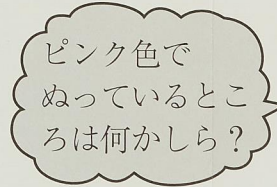 ピンク色で
ぬっているとこ
ろは何かしら？